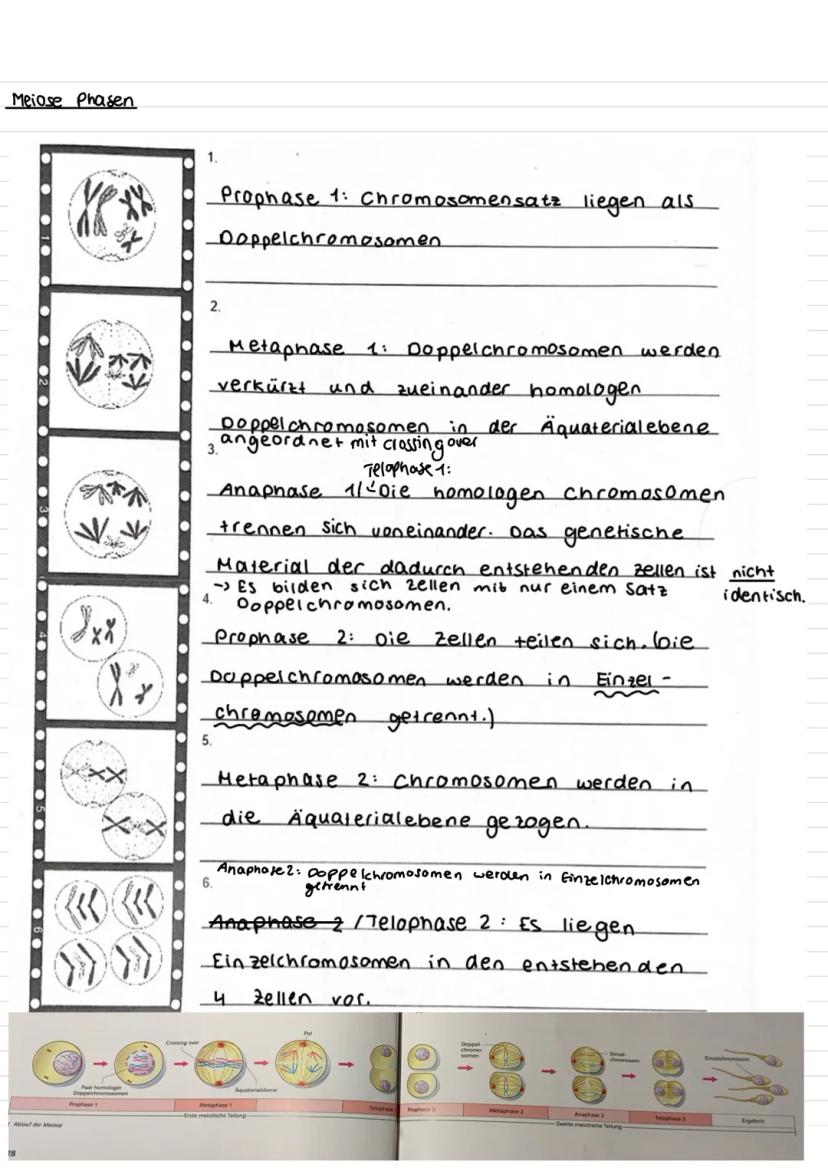 Meiose Phasen
1.
Prophase 1: Chromosomensatz liegen als
Doppelchromosomen
1
2.
Metaphase 1: Doppelchromosomen werden
verkürzt und zueinander homologen
Doppelchromosomen in der Äquaterialebene
angeordnet mit crossing over
2
3.
Telophase 1:
Anaphase 1/ Die homologen Chromosomen
trennen sich voneinander. Das genetische
Material der dadurch entstehenden Zellen ist nicht
identisch.
-> Es bilden sich Zellen mit nur einem Satz
Doppelchromosomen.
3
4.
Prophase 2: Die Zellen teilen sich. (Die
Doppelchromosomen werden in Einzel-
chromosomen getrennt.)
4
5.
Metaphase 2: Chromosomen werden in
die Äquaterialebene gezogen.
5
Anaphase 2: Doppelchromosomen werden in Einzelchromosomen
getrennt
6.
Anaphase 2 / Telophase 2: Es liegen
Einzelchromosomen in den entstehenden
4 Zellen vor.
6
Crossing over
Pol
Paar homologer
Doppelchromosomen
Äquatorialebene
Prophase 1
Metaphase 1
Telophase
Erste meiotische Teilung
Ablauf der Meiose
28
Doppel-
chromo-
somen
Einzel-
chromosom
Einzelchromosom
Prophase 2
Metaphase 2
Anaphase 2
Telophase 2
Ergebnis
Zweite meiotische Teilung